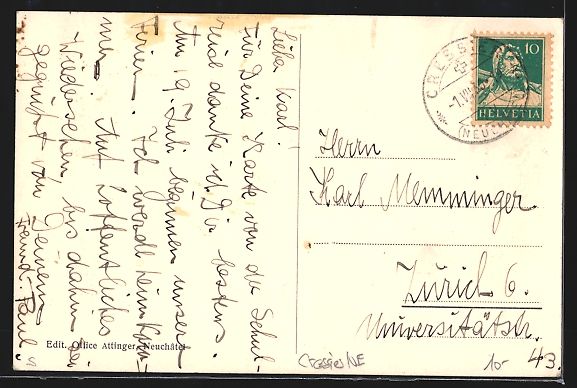 Lieber Karl!
Für Deine Karte von der Schul-
reise danke ich Dir bestens.
Am 19. Juli beginnen unsere
Ferien. Ich werde heim kom-
men. Auf hoffentliches
Wiedersehen, bis dahin sei
gegrüsst von Deinem
Freund Paul
Edit. Office Attinger, Neuchâtel
CRESSIER
(NEUCH
10
HELVETIA
Herrn
Karl Memminger
Zürich 6.
Universitätstr.
43.
Cressier/NE
10-